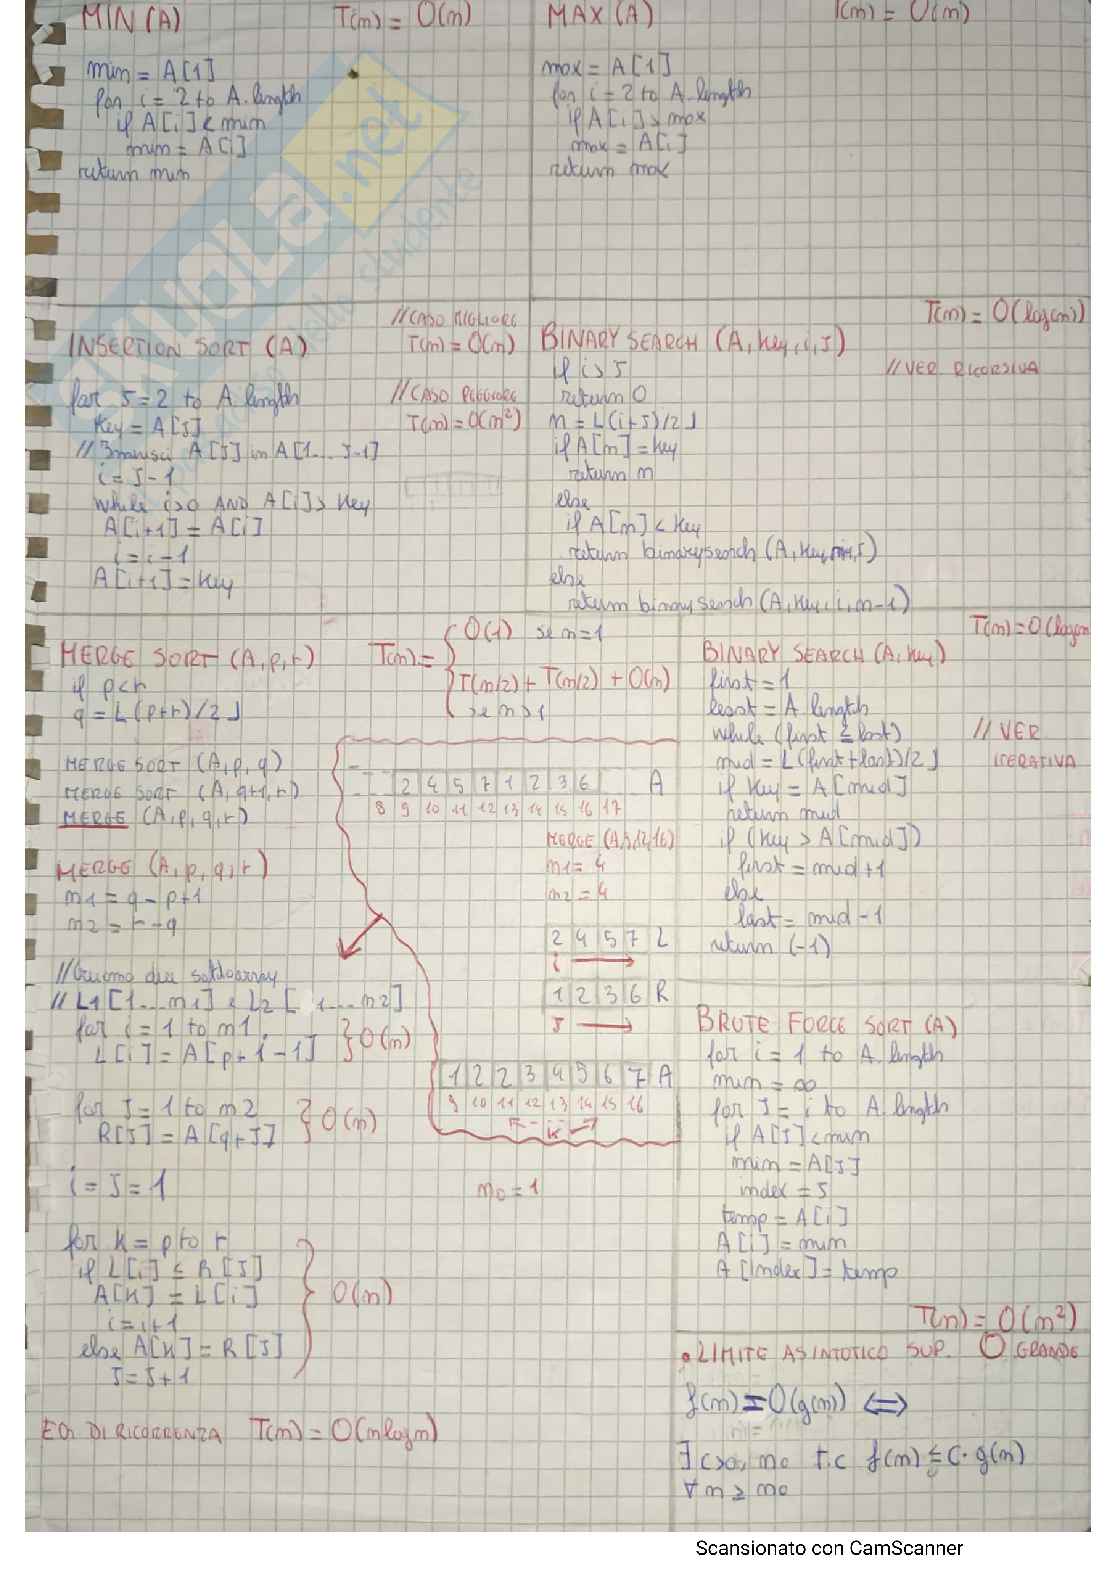 MIN (A) T(m) = O(m)
min = A[1]
for i = 2 to A. length
if A[i] < min
min = A[i]
return min
MAX (A) T(m) = O(m)
max = A[1]
for i = 2 to A. length
if A[i] > max
max = A[i]
return max
SKUOLA.net
INSERTION SORT (A)
// CASO MIGLIORE
T(m) = O(m)
// CASO PEGGIORE
T(m) = O(m²)
for J = 2 to A. length
Key = A[J]
// Inserisci A[J] in A[1... J-1]
i = J - 1
while i>0 AND A[i] > Key
A[i+1] = A[i]
i = i - 1
A[i+1] = Key
T(m) = O(log(m))
BINARY SEARCH (A, Key, i, J)
// VER. RICORSIVA
if i > J
return 0
m = ⌊(i+J)/2⌋
if A[m] = Key
return m
else
if A[m] < Key
return binarysearch (A, Key, J)
else
return binarysearch (A, Key, i, m-1)
MERGE SORT (A, p, r)
if p<r
q = ⌊(p+r)/2⌋
MERGE SORT (A, p, q)
MERGE SORT (A, q+1, r)
MERGE (A, p, q, r)
T(m) = { O(1) se m=1
T(m/2) + T(m/2) + O(m)
se m>1
2 4 5 7 1 2 3 6 A
8 9 10 11 12 13 14 15 16 17
MERGE (A, 9, 12, 16)
m1 = 4
m2 = 4
2 4 5 7 L
i
1 2 3 6 R
J
1 2 2 3 4 5 6 7 A
9 10 11 12 13 14 15 16
K
m0 = 1
MERGE (A, p, q, r)
m1 = q - p + 1
m2 = r - q
// Creiamo due sottoarray
// L1 [1...m1] e L2 [1...m2]
for i = 1 to m1
L[i] = A[p+1-1] } O(m)
for J = 1 to m2
R[J] = A[q+J] } O(m)
i = J = 1
for K = p to r
if L[i] ≤ R[J]
A[K] = L[i]
i = i+1
else A[K] = R[J]
J = J+1
} O(m)
EQ. DI RICORRENZA T(m) = O(m log m)
T(m) = O(log m
BINARY SEARCH (A, Key)
first = 1
least = A. length
while (first ≤ last)
// VER
ITERATIVA
mid = ⌊(first+last)/2⌋
if Key = A[mid]
return mid
if (Key > A[mid])
first = mid+1
else
last = mid - 1
return (-1)
BRUTE FORCE SORT (A)
for i = 1 to A. length
min = ∞
for J = i to A. length
if A[J] < min
min = A[J]
index = J
temp = A[i]
A[i] = min
A[index] = temp
T(n) = O(m²)
• LIMITE ASINTOTICO SUP. O GRANDE
f(m) = O(g(m)) ⟺
∃ c>0, m0 t.c f(m) ≤ c · g(m)
∀ m ≥ m0
Scansionato con CamScanner